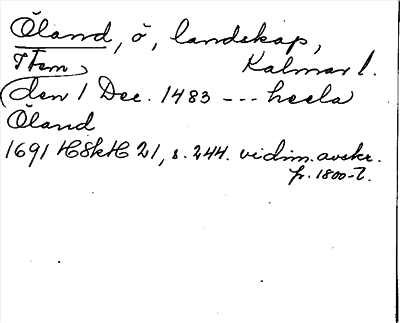 Öland, ö, landskap,
Item Kalmar l.
(den 1 Dec. 1483 --- heela
Öland
1691 HSkH 21, s. 244. vidim. avskr.
fr. 1800-t.